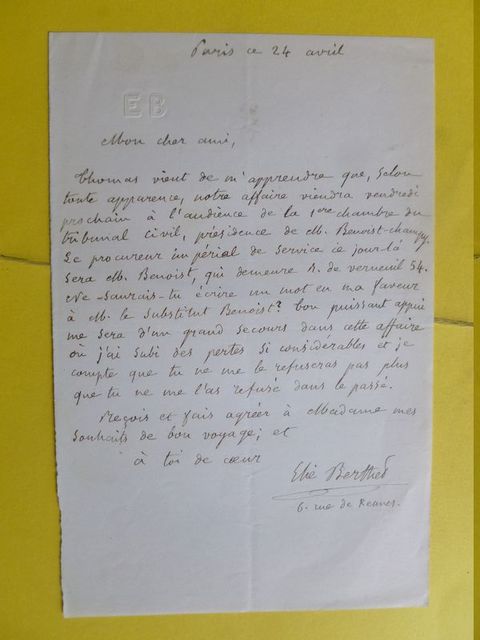 Paris ce 24 avril
EB
Mon cher ami,
Thomas vient de m'apprendre que, selon
toute apparence, notre affaire viendra vendredi
prochain à l'audience de la 1ere chambre du
tribunal civil, présidence de M. Benoist-champy.
Le procureur impérial de service ce jour-là
sera M. Benoist, qui demeure R. de verneuil 54.
Ne saurais-tu écrire un mot en ma faveur
à M. le substitut Benoist? Ton puissant appui
me sera d'un grand secours dans cette affaire
où j'ai subi des pertes si considérables et je
compte que tu ne me le refuseras pas plus
que tu ne me l'as refusé dans le passé.
Reçois et fais agréer à Madame mes
souhaits de bon voyage; et
à toi de cœur
Elie Berthet
6. rue de Rennes.